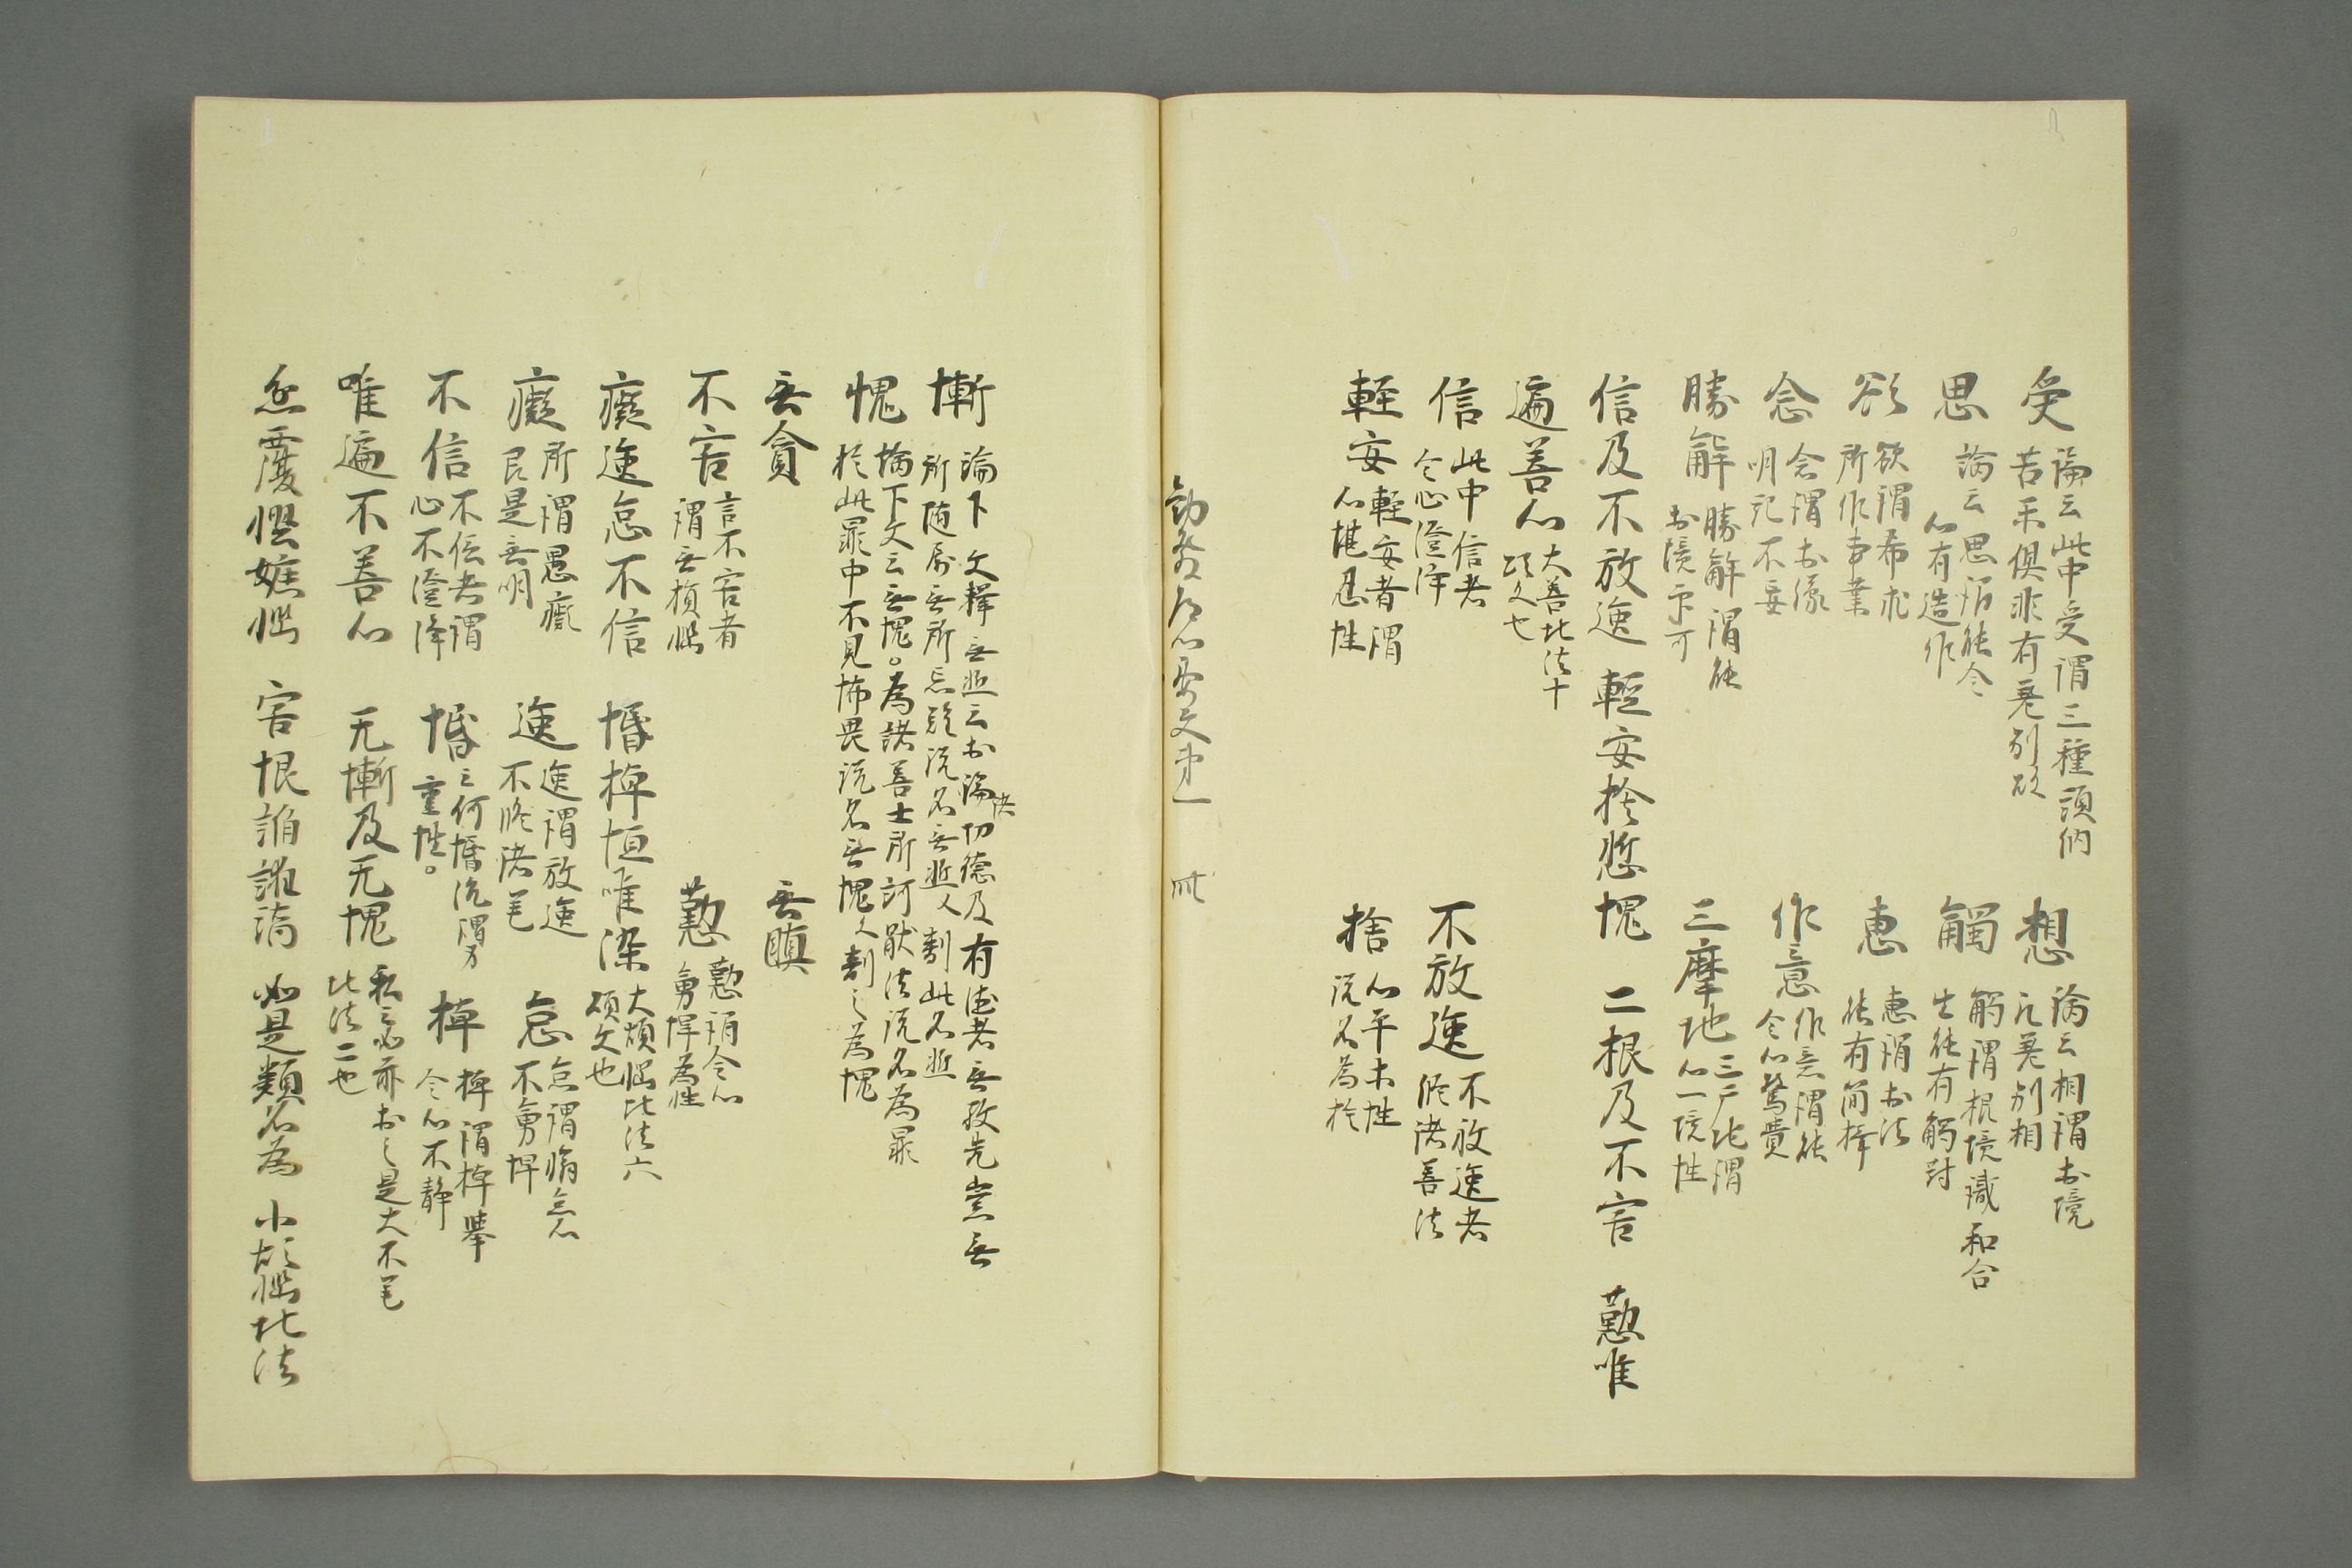 受 論云此中受謂三種領納
苦楽倶非有差別故
想 論云相謂於境
取差別相
思 論云思謂能令
心有造作
觸 觸謂根境識和合
生能有觸対
欲 欲謂希求
所作事業
恵 恵謂於法
能有簡択
念 念謂於縁
明記不妄
作意 作意謂能
令心驚覺
勝解 勝解謂能
於境印可
三摩地 三广地謂
心一境性
信及不放逸 輕安捨慙愧 二根及不害 懃唯
遍善心 大善地法十
頌文也
信 此中信者
令心澄浄
不放逸 不放逸者
修諸善法
輕安 輕安者謂
心堪忍性
捨 心平ホ性
説名為捨
慚 論下文釋無慙云於諸功徳及有徳者無敬无崇無
所随属無所忌難説名無慙 翻此名慙
愧 論下文云無愧。為諸善士所訶猒法説名為罪
於此罪中不見怖畏説名無愧 翻之為愧
無貪 無瞋
不害 言不害者
謂無損惱
懃 懃謂令心
勇悍為性
癡逸怠不信 惛掉恒唯染 大煩惱地法六
頌文也
癡 所謂愚癡
即是無明
逸 逸謂放逸
不修諸善
怠 怠謂懈怠心
不勇悍
不信 不信者謂
心不澄浄
惛 云何惛沈謂身
重性。
掉 掉謂掉擧
令心不静
唯遍不善心 无慚及无愧 大不善
地法二也
忿覆慳嫉惱 害恨諂誑憍 如是類名為 小煩惱地法